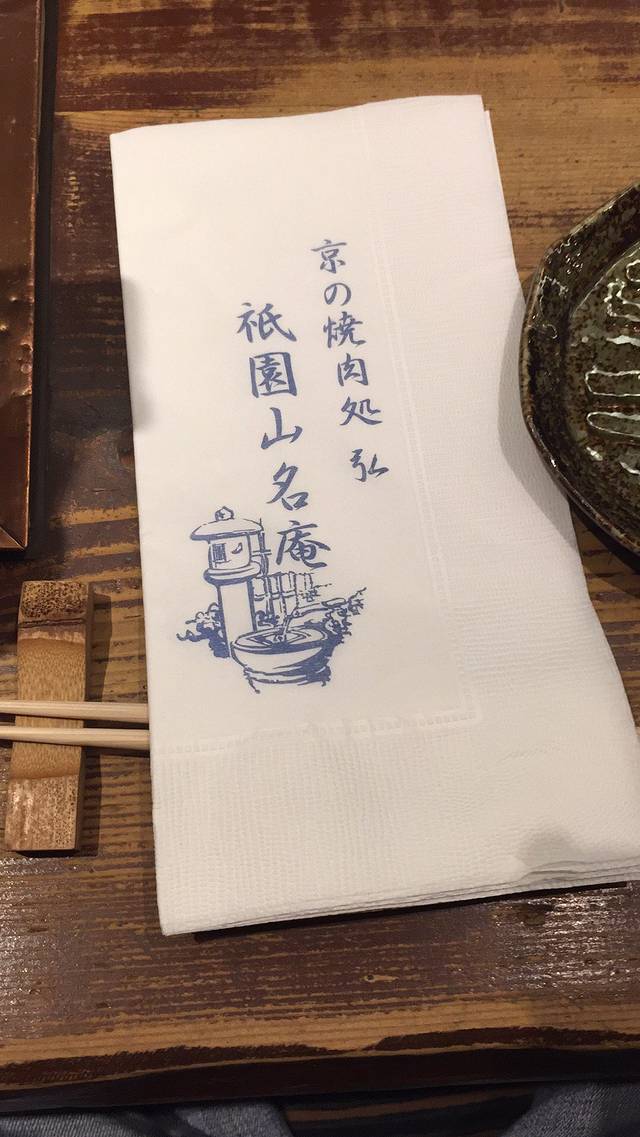 京の焼肉処 弘
祇園山名庵